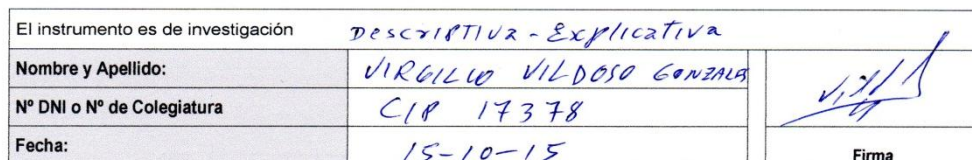 El instrumento es de investigación Descriptiva - Explicativa
Nombre y Apellido: VIRGILIO VILDOSO GONZALES
Nº DNI o Nº de Colegiatura CIP 17378
Fecha: 15-10-15
Firma